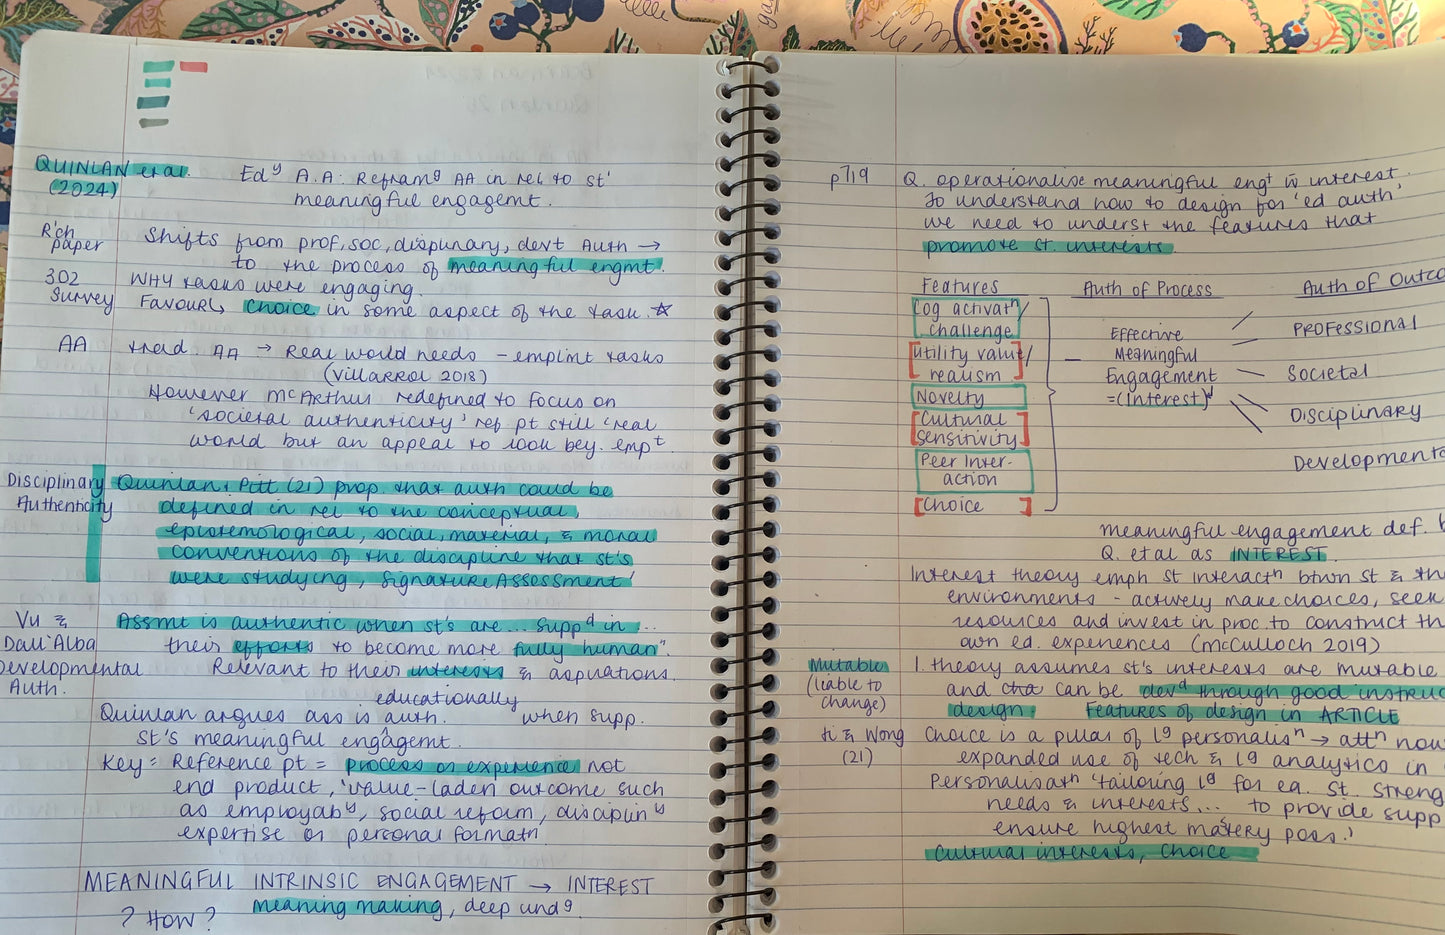 QUINLAN et al. (2024)
Ed^y A.A: Refram^g AA in rel to st'
meaningful engagemt.
R'ch paper
Shifts from prof, soc, disciplinary, devt Auth →
to the process of meaningful engmt.
302 Survey
WHY tasks were engaging.
Favour↳ choice in some aspect of the task. ☆
AA
trad AA → Real world needs - emplmt tasks
(Villarrol 2018)
However McArthur redefined to focus on
'societal authenticity' ref pt still 'real
world but an appeal to look bey. emp^t.
Disciplinary Authenticity
Quinlan + Pitt (21) prop. that auth could be
defined in rel to the conceptual,
epistemological, social, material, & moral
conventions of the discipline that st's
were studying, 'Signature Assessment'
Vu & Dall'Alba
Assmt is authentic when st's are... supp^d in...
their efforts to become more fully human".
Developmental Auth.
Relevant to their interests & aspirations.
educationally
Quinlan argues ass is auth. when supp.
st's meaningful engagemt.
Key = Reference pt = process or experience not
end product, 'value-laden outcome such
as employab^y, social reform, disciplin^y
expertise or personal formatn
MEANINGFUL INTRINSIC ENGAGEMENT → INTEREST
? HOW?
meaning making, deep und^g.
p719
Q. operationalise meaningful eng^t w interest.
To understand how to design for 'ed auth'
we need to underst the features that
promote st. interests.
Features
Auth of Process
Auth of Outco
Cog activat^n/
challenge
Utility value/
realism
Novelty
Cultural
Sensitivity
Peer Inter-
action
Choice
Effective
Meaningful
Engagement
=(Interest)
PROFESSIONAL
Societal
Disciplinary
Developmenta
meaningful engagement def. b
Q. et al as INTEREST
Interest theory emph st interact^n btwn st & the
environments - actively make choices, seek
resources and invest in proc. to construct th
own ed. experiences (McCulloch 2019)
Mutable
(liable to
change)
1. theory assumes st's interests are mutable
and cha can be dev^d through good instruc
design. Features of design in ARTICLE
& Wong
(21)
Choice is a pillar of l^g personalis^n → att^n now
expanded use of tech & l^g analytics in
Personalisat^n 'tailoring l^g for ea. st. streng
needs & interests... to provide supp
ensure highest mastery poss.'
Cultural interests, choice